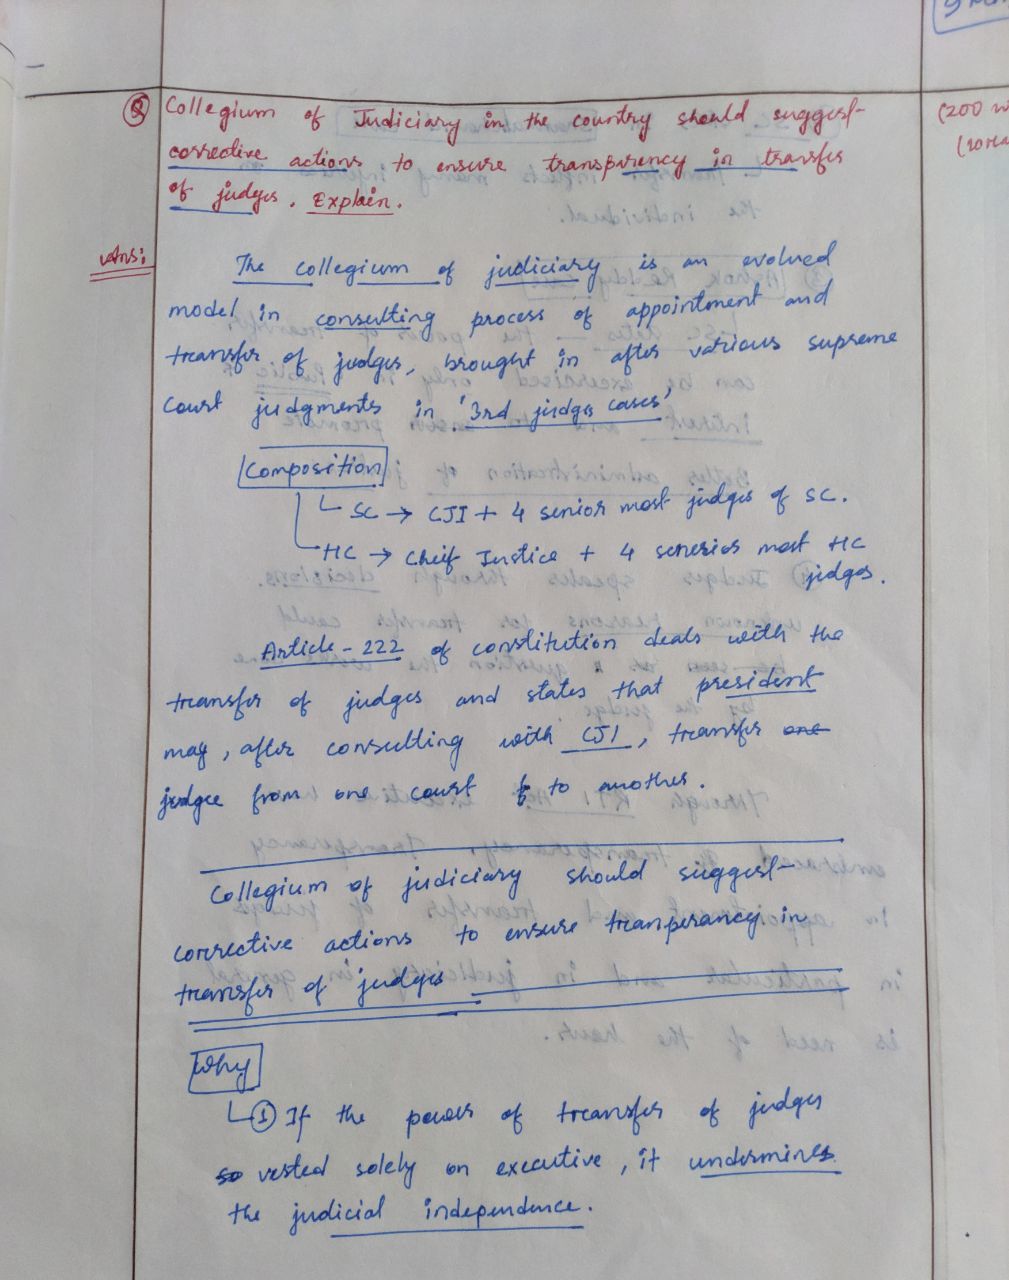 Q Collegium of Judiciary in the country should suggest
corrective actions to ensure transpurency in transfer
of judges. Explain.
(200 w
Ans:
The collegium of judiciary is an evolved
model in consulting process of appointment and
transfer of judges, brought in after various supreme
court judgments in '3rd judges cases'
Composition
SC → CJI + 4 senior most judges of SC.
HC → Cheif Justice + 4 most HC
judges.
Article-222 of constitution deals with the
transfer of judges and states that president
may, after consulting with CJI, transfer one
judge from one court to another.
Collegium of judiciary should suggest
corrective actions to ensure tranperancy in
transfer of judges
Why
① If the power of transfer of judges
so vested solely on executive, it undermines
the judicial independence.